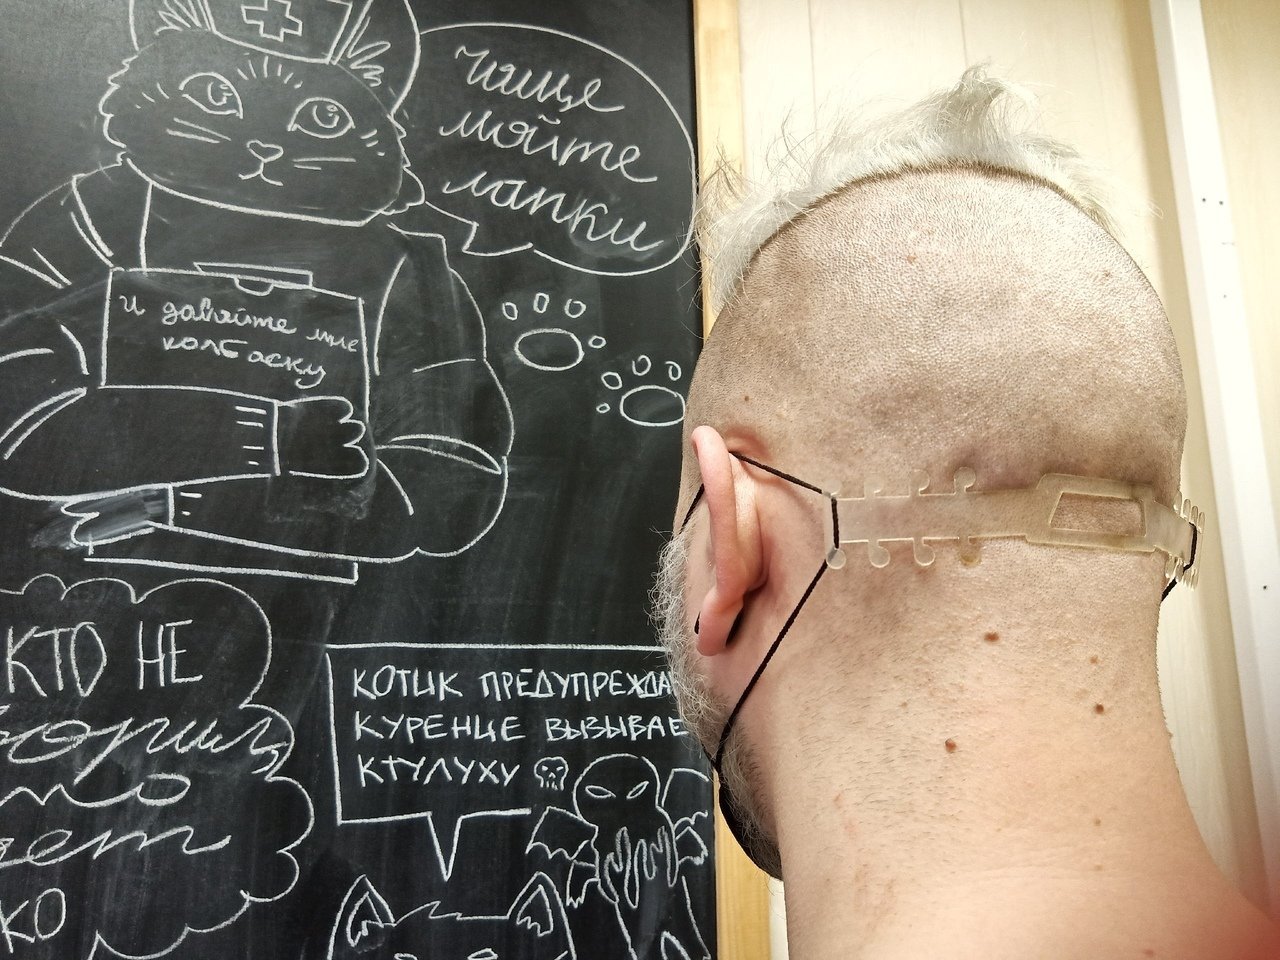 чище
мойте
лапки
и давайте мне
колбаску
КТО НЕ
КОТИК ПРЕДУПРЕЖДА
КУРЕНИЕ ВЫЗЫВАЕ
КТУЛУХУ